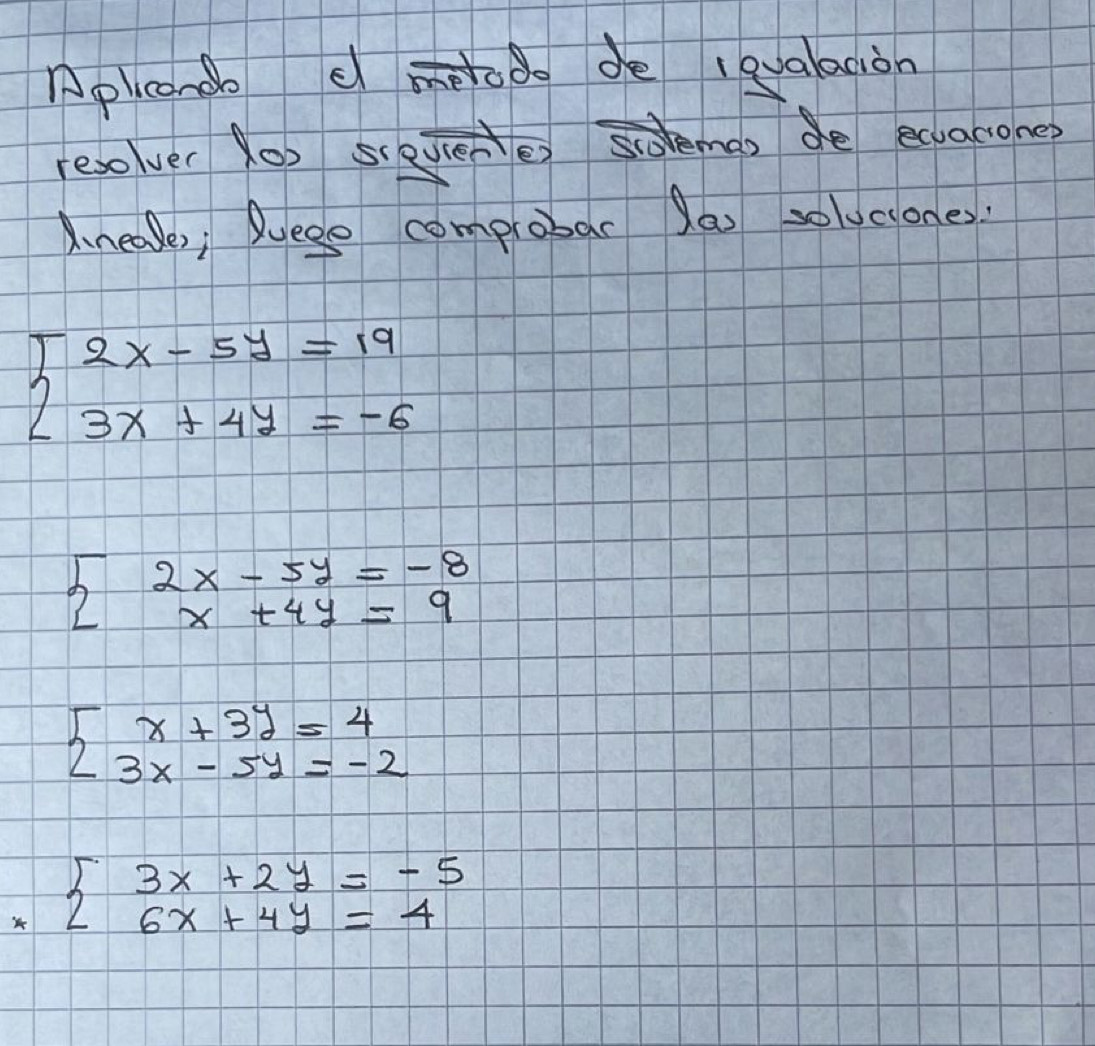 Aplicando el metodo de igualación
resolver los siguientes sistemas de ecuaciones
lineales; luego comprobar las soluciones:
2x - 5y = 19
3x + 4y = -6
2x - 5y = -8
x + 4y = 9
x + 3y = 4
3x - 5y = -2
3x + 2y = -5
* 6x + 4y = 4